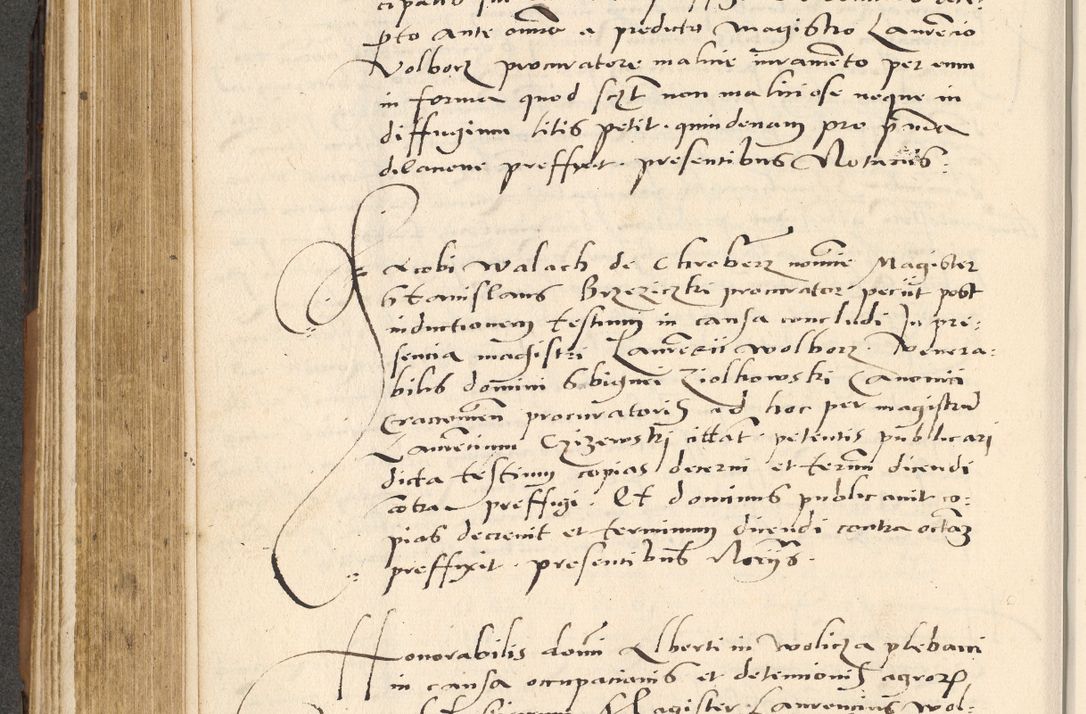 pto ante omnia a predicto Magistro Laurencio
Volborz procuratore malicie iuramento per eum
in forma quod scit non maliciose neque in
diffugium litis petit quindenam pro
dilacione preffixit presentibus Notariis.
Jacobi Walach de Chroberz nomine Magister
Stanislaus Brzeziczki procurator peciit post
inductionem testium in causa concludi In pre:
sencia magistri Laurencii Wolborz Venera:
bilis domini Sbignei Ziolkowski Canonici
Cracovien procuratoris ad hoc per magistrum
Laurencium Czizewski citat petentis publicari
dicta testium copias decerni et termin dicendi
contra preffigi. Et dominus publicavit co:
pias decrevit et terminum dicendi contra octavam
preffixit presentibus Notriis.
Honorabilis domi Alberti in Wolicza plebani
in causa occupacionis et detencionis agror
Magister Laurencius Wol: